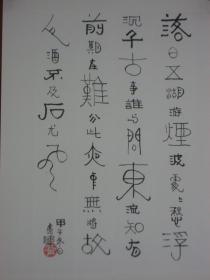 落日五湖游煙波處〻愁浮
沉千古事誰与問東流知有
前期在難分此夜中無將故
人酒不及石尤風
甲子冬日